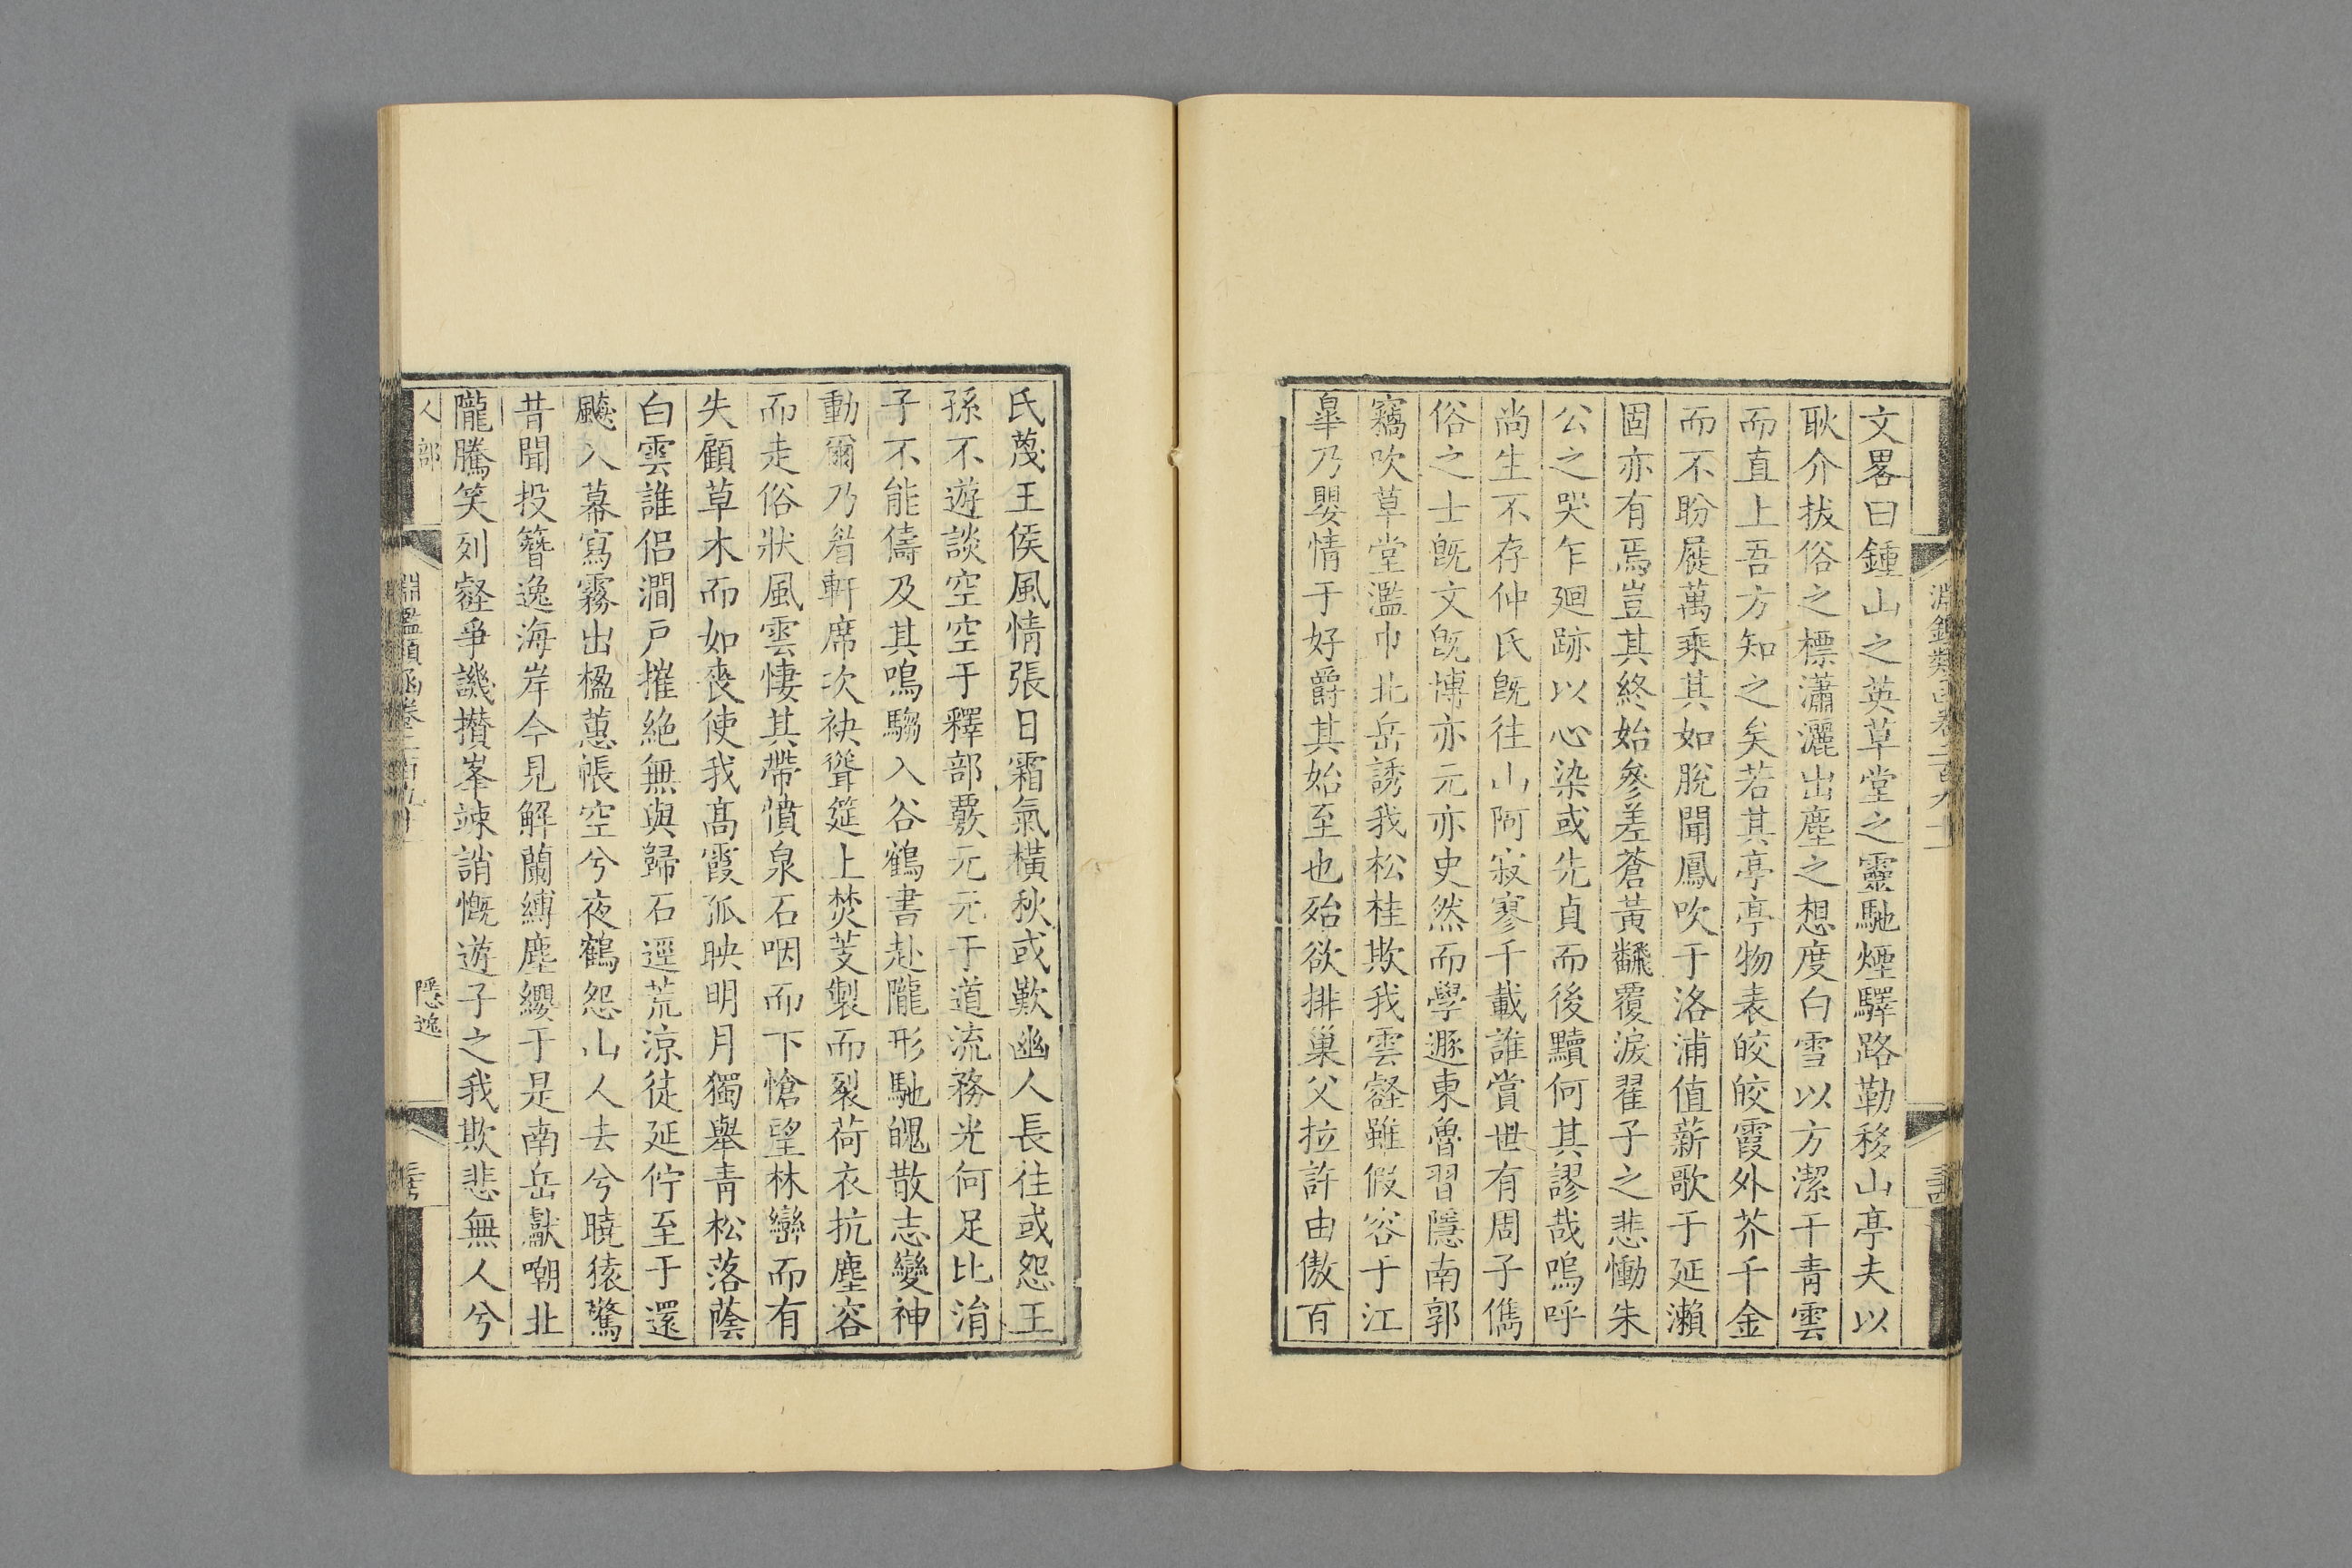 文畧曰鍾山之英草堂之靈馳煙驛路勒移山亭夫以
耿介拔俗之標瀟灑出塵之想度白雪以方潔干青雲
而直上吾方知之矣若其亭亭物表皎皎霞外芥千金
而不盼屣萬乘其如脫聞鳳吹于洛浦值薪歌于延瀨
固亦有焉豈其終始參差蒼黃飜覆淚翟子之悲慟朱
公之哭乍廻跡以心染或先貞而後黷何其謬哉嗚呼
尚生不存仲氏旣往山阿寂寥千載誰賞世有周子儁
俗之士旣文旣博亦元亦史然而學遯東魯習隱南郭
竊吹草堂濫巾北岳誘我松桂欺我雲壑雖假容于江
臯乃嬰情于好爵其始至也殆欲排巢父拉許由傲百
氏蔑王侯風情張日霜氣橫秋或歎幽人長往或怨王
孫不遊談空空于釋部覈元元于道流務光何足比涓
子不能儔及其鳴騶入谷鶴書赴隴形馳魄散志變神
動爾乃眉軒席次袂聳筵上焚芰製而裂荷衣抗塵容
而走俗狀風雲悽其帶憤泉石咽而下愴望林巒而有
失顧草木而如喪使我高霞孤映明月獨舉青松落蔭
白雲誰侶澗戶摧絕無與歸石逕荒涼徒延佇至于還
飈入幕寫霧出楹蕙帳空兮夜鶴怨山人去兮曉猿驚
昔聞投簪逸海岸今見解蘭縛塵纓于是南岳獻嘲北
隴騰笑列壑爭譏攢峯竦誚慨遊子之我欺悲無人兮
人部
淵鑑類函卷二百九十一
隱逸